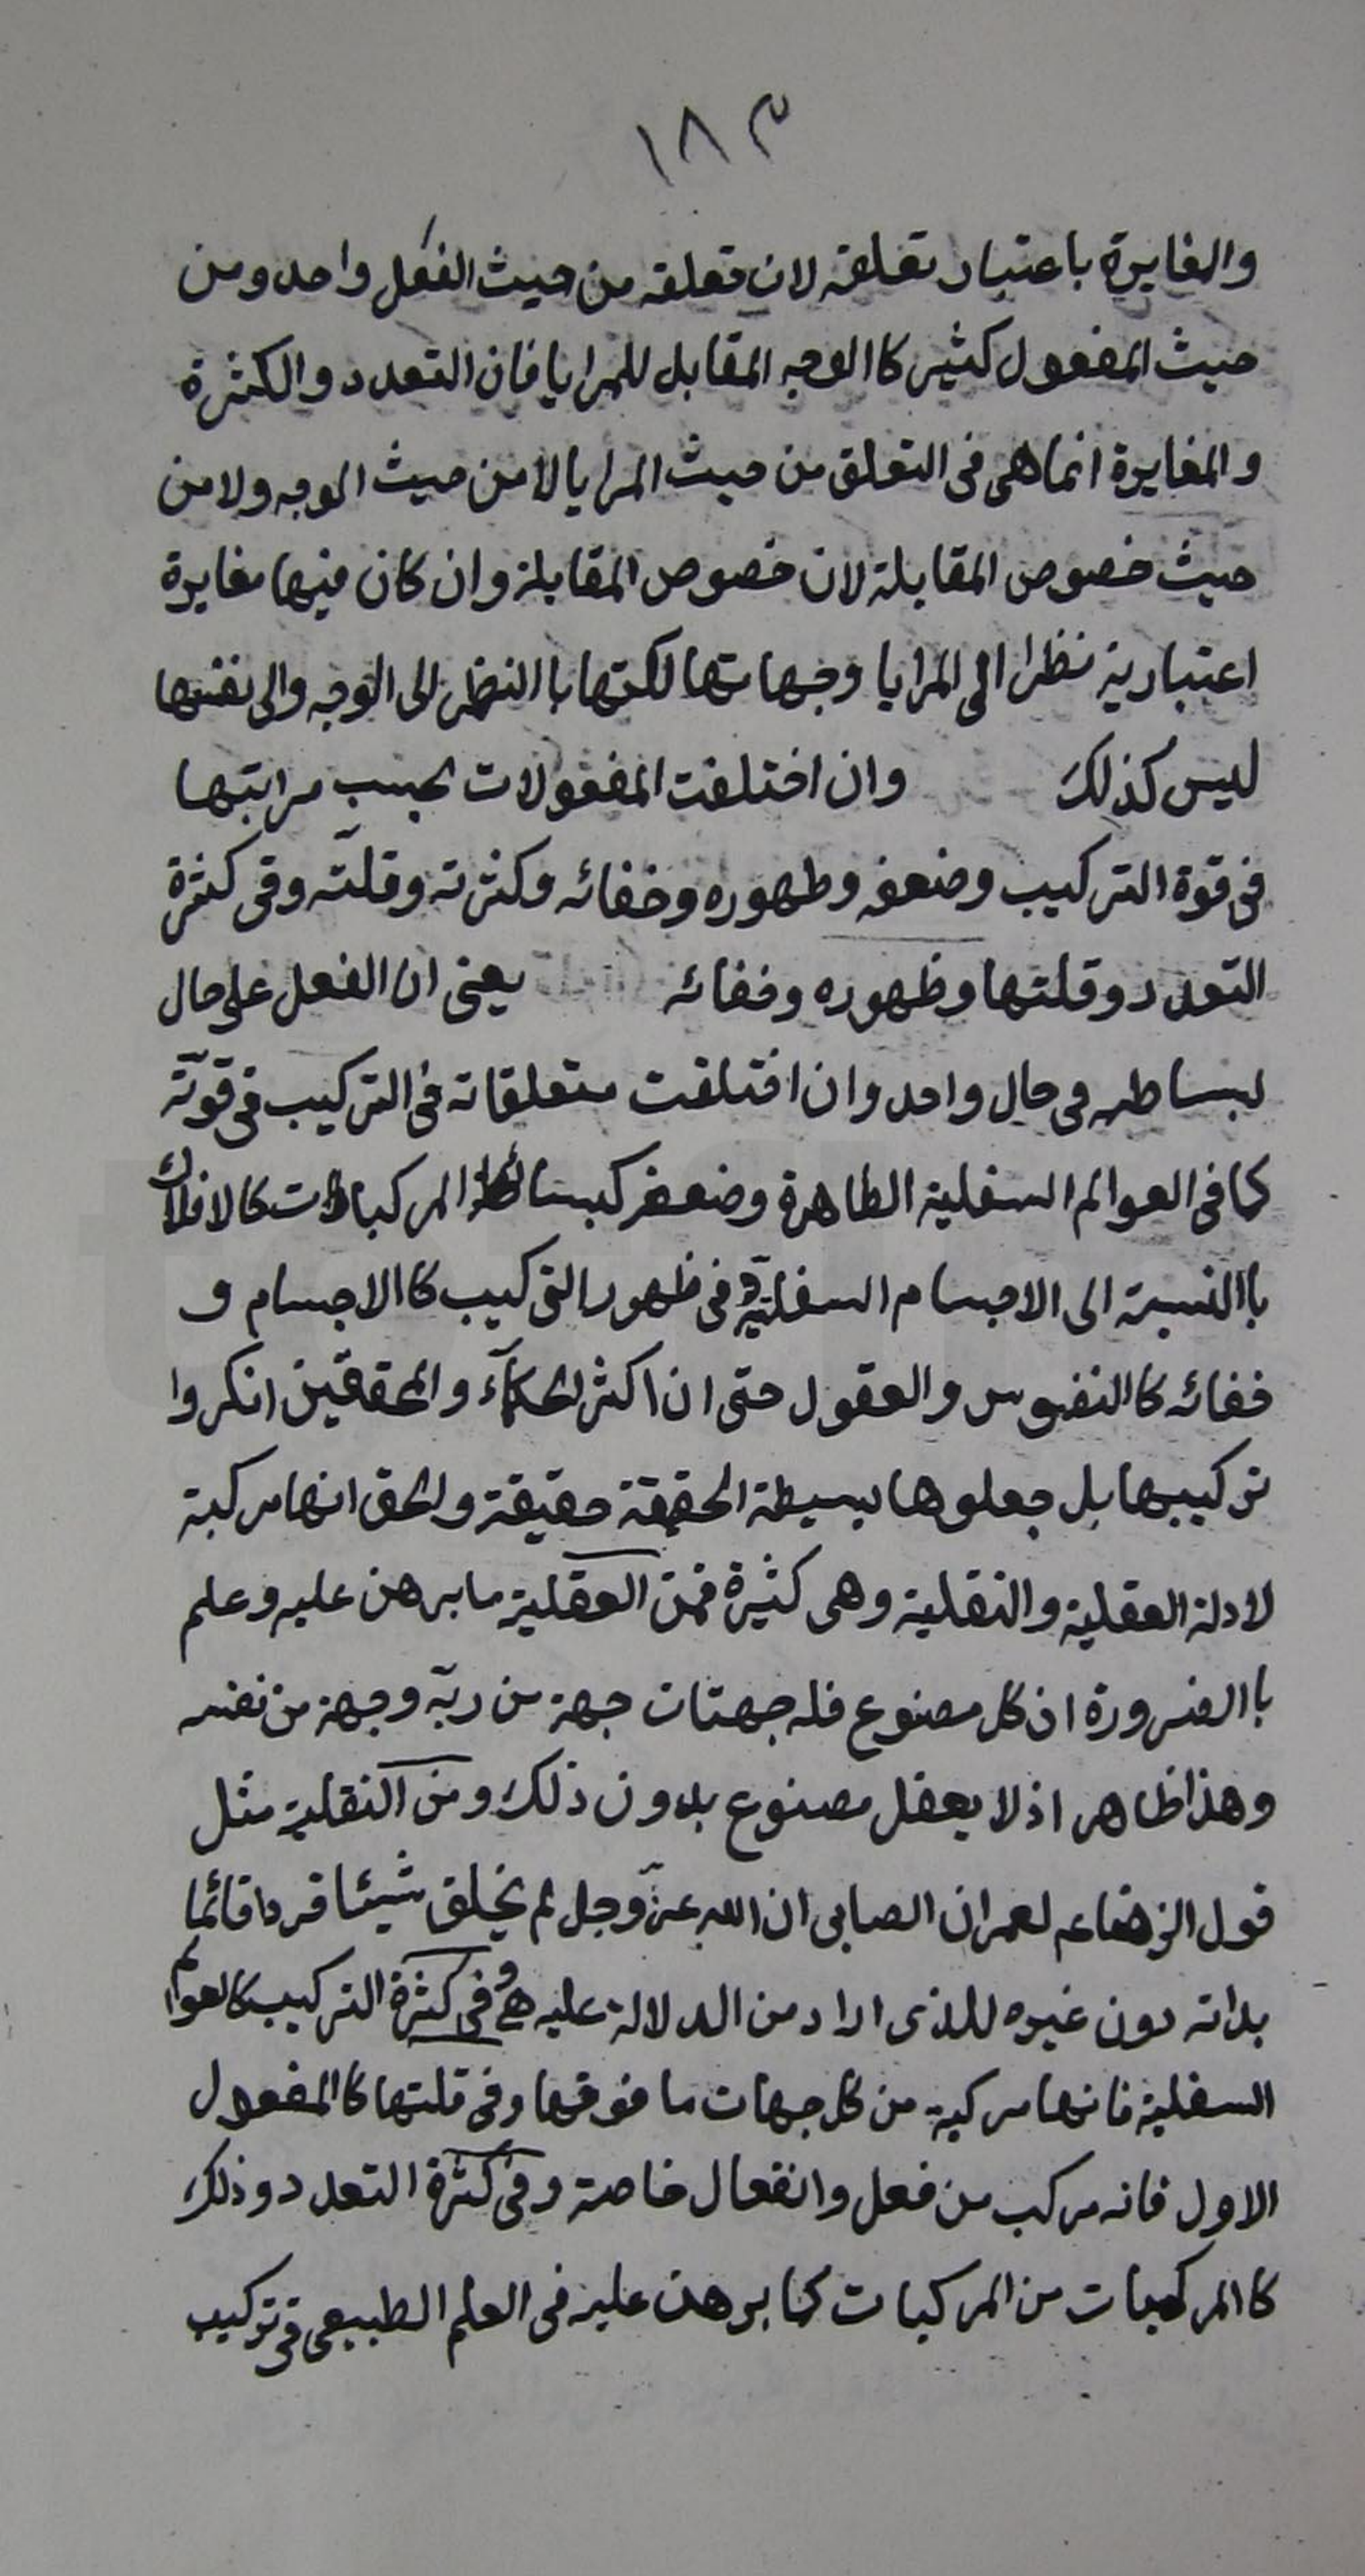 ١٨٣
والمغايرة باعتبار تعلقه لان تعلقه من حيث الفعل واحد ومن
حيث المفعول كثير كا الوجه المقابل للمرايا فان التعدد والكثرة
والمغايرة انما هى فى التعلق من حيث المرايا لا من حيث الوجه ولا من
حيث خصوص المقابلة لان خصوص المقابلة وان كان فيها مغايرة
اعتبارية نظرا الى المرايا وجهاتها لكنها با النظر الى الوجه والى نفسها
ليس كذلك وان اختلفت المفعولات بحسب مراتبها
فى قوة التركيب وضعفه وظهوره وخفائه وكثرته وقلته وفى كثرة
التعدد وقلتها وظهوره وخفائه يعنى ان الفعل على حال
بساطه فى حال واحد وان اختلفت متعلقاته فى التركيب فى قوته
كما فى العوالم السفلية الظاهرة وضعفه كبسائط المركبات كالافلاك
با النسبة الى الاجسام السفلية و فى ظهور التركيب كا الاجسام و
خفائه كا النفوس والعقول حتى ان اكثر الحكمآء والمحققين انكروا
تركيبها بل جعلوها بسيطة الحقيقة حقيقة والحق انها مركبة
لادلة العقلية والنقلية وهى كثيرة فمن العقلية ما برهن عليه وعلم
با الضرورة ان كل مصنوع فله جهتان جهة من ربه وجهة من نفسه
وهذا ظاهر اذ لا يعقل مصنوع بدون ذلك ومن النقلية مثل
قول الرضاعم لعمران الصابى ان الله عز وجل لم يخلق شيئا فردا قائما
بذاته دون غيره للذى اراد من الدلالة عليه هـ وفى كثرة التركيب كالعوالم
السفلية فانها مركبة من كل جهات ما فوقها وفى قلتها كا المفعول
الاول فانه مركب من فعل وانفعال خاصة وفى كثرة التعدد وذلك
كا المركبات من المركبات كما برهن عليه فى العلم الطبيعى فى تركيب